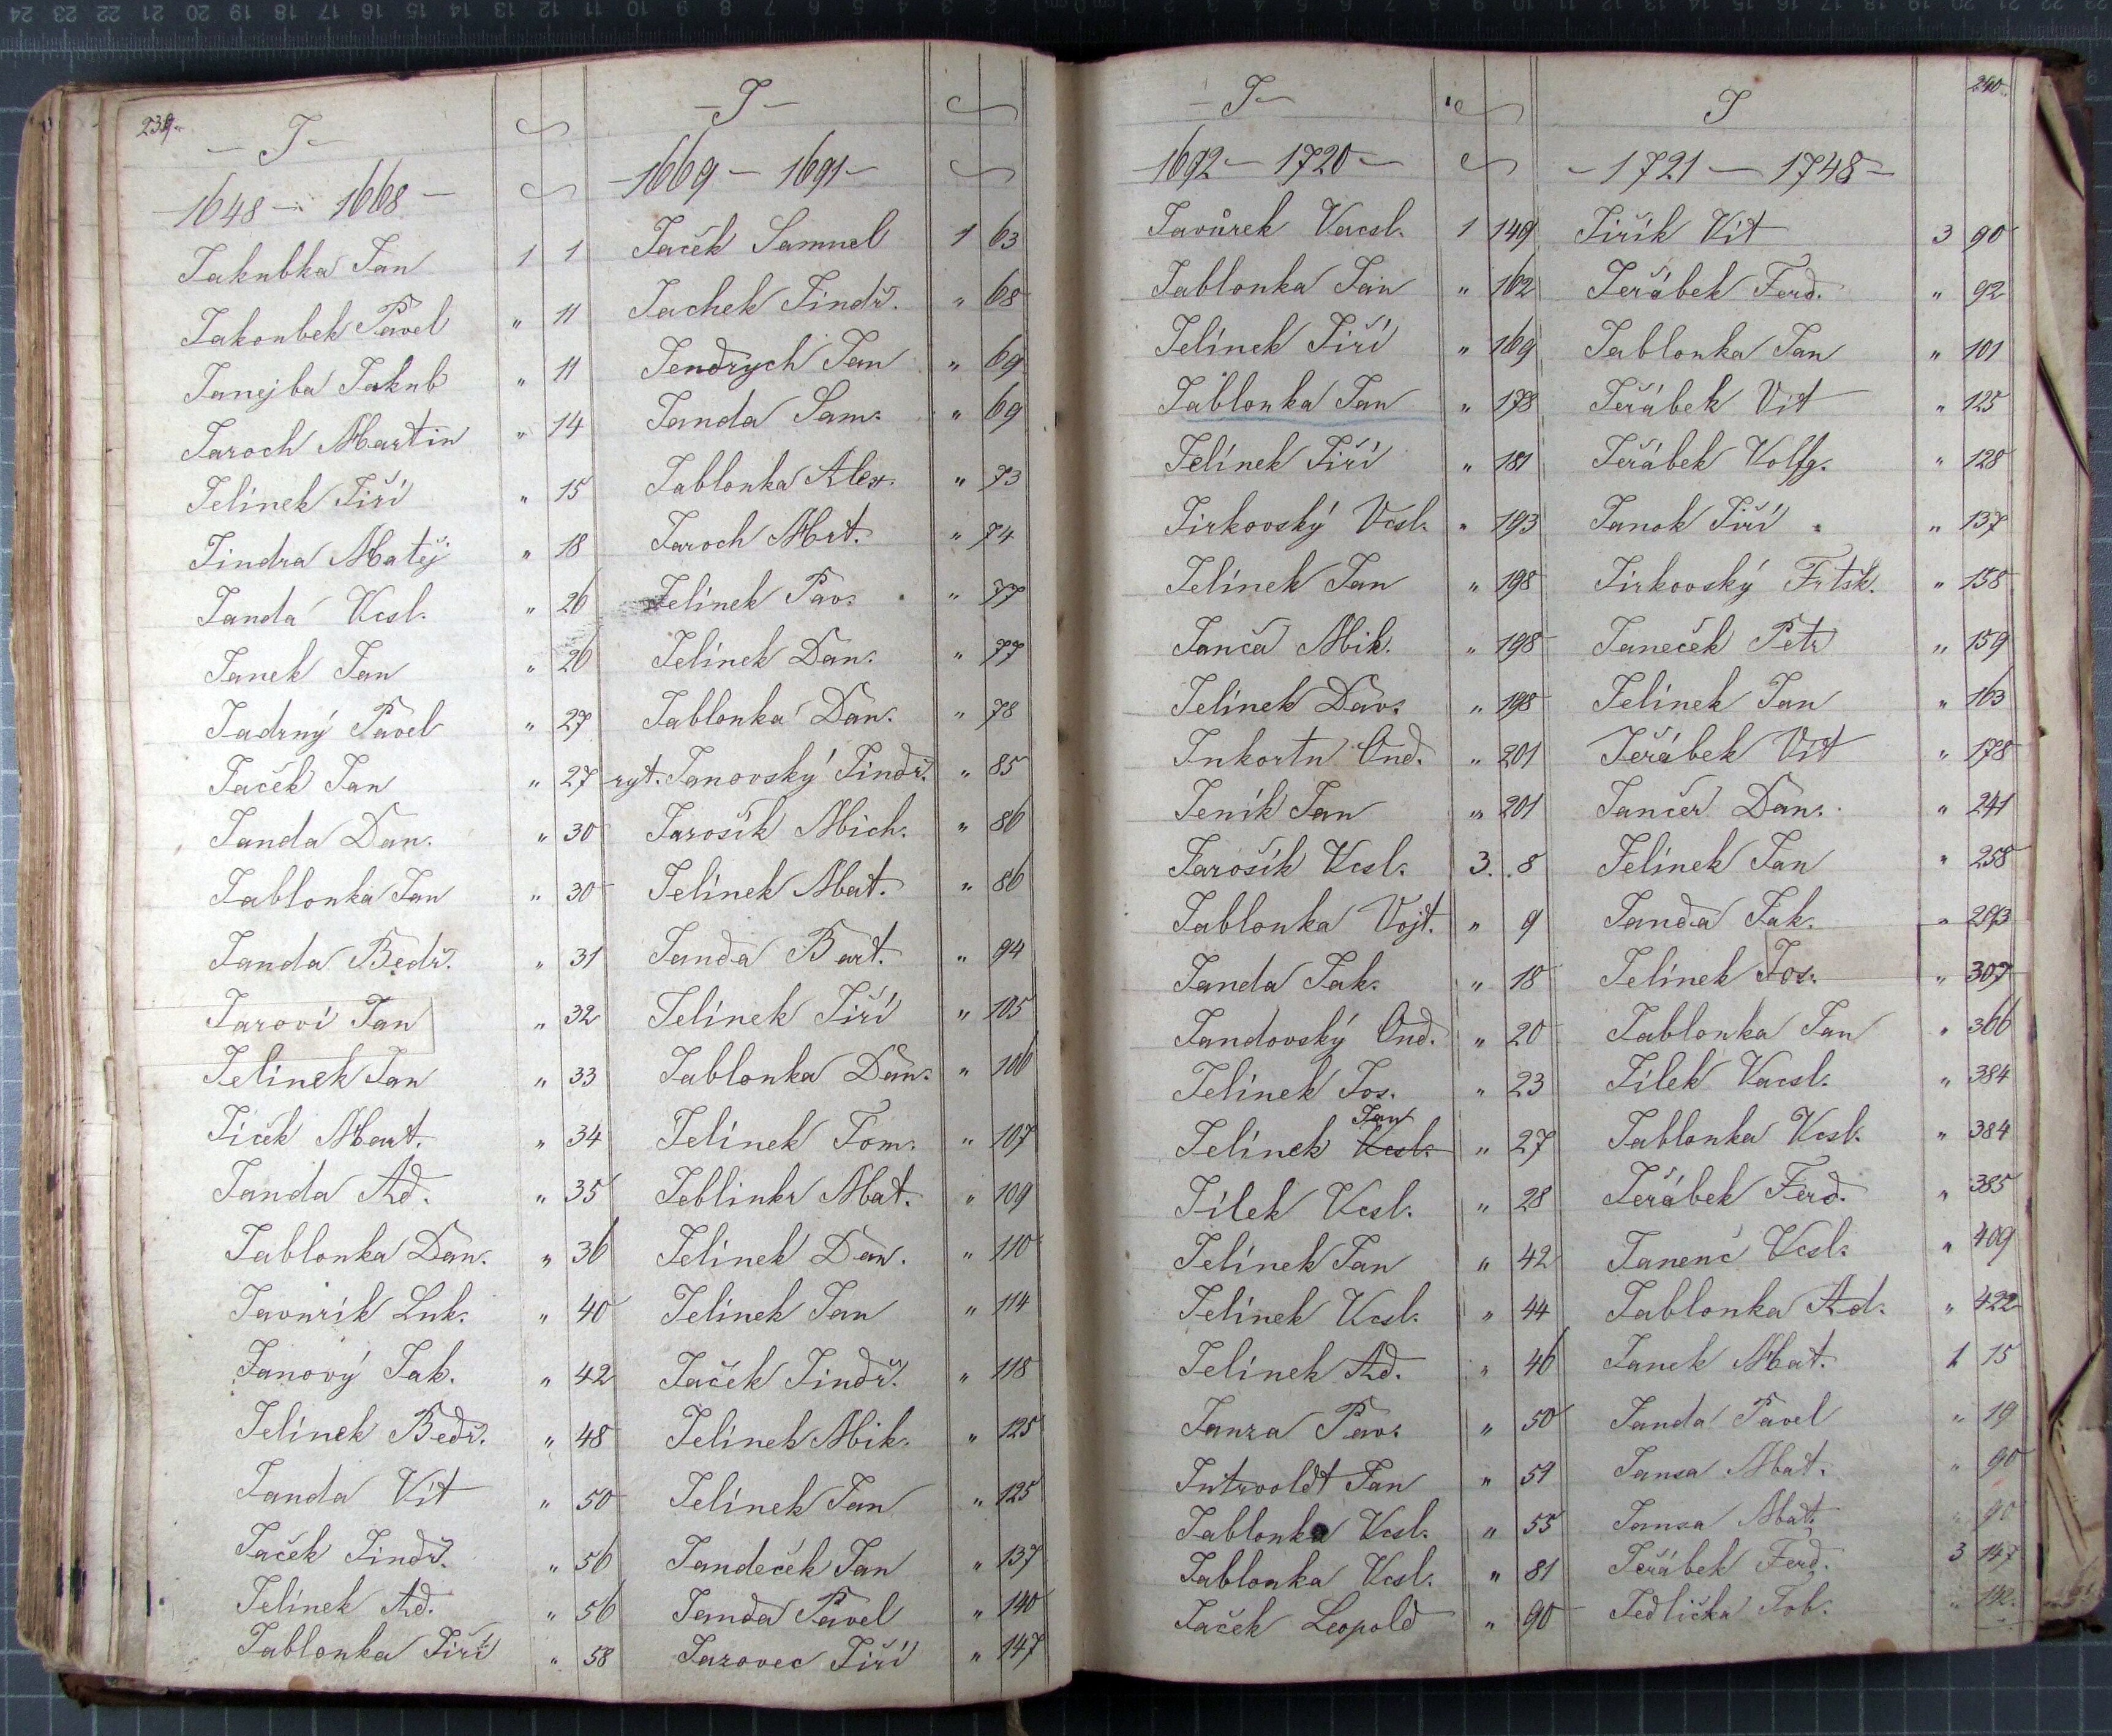 239.
- J -
1648 - 1668 -
Jakubka Jan 1 1
Jakoubek Pavel " 11
Janejba Jakub " 11
Jaroch Martin " 14
Jelínek Jiří " 15
Jindra Matěj " 18
Janda Vcsl. " 26
Janek Jan " 26
Jadrný Pavel " 27
Jaček Jan " 27
Janda Dan. " 30
Jablonka Jan " 30
Janda Bedř. " 31
Jaroví Jan " 32
Jelínek Jan " 33
Jíček Mart. " 34
Janda Ad. " 35
Jablonka Dan. " 36
Javurík Luk. " 40
Janový Jak. " 42
Jelínek Bedř. " 48
Janda Vít " 50
Jaček Jindř. " 56
Jelínek Ad. " 56
Jablonka Jiří " 58
- J -
- 1669 - 1691 -
Jaček Samuel 1 63
Jachek Jindř. " 68
Jendrych Jan " 69
Janda Sam. " 69
Jablonka Alex. " 73
Jaroch Mrt. " 74
Jelínek Pav. " 77
Jelínek Dan. " 77
Jablonka Dan. " 78
ryt. Janovský Jindř. " 85
Jarošík Mich. " 86
Jelínek Mat. " 86
Janda Bart. " 94
Jelínek Jiří " 105
Jablonka Dan. " 106
Jelínek Tom. " 107
Jeblinkr Mat. " 109
Jelínek Dan. " 110
Jelínek Jan " 114
Jaček Jindř. " 118
Jelínek Mik. " 125
Jelínek Jan " 125
Jandeček Jan " 137
Janda Pavel " 140
Jazovec Jiří " 147
- J -
1692 - 1720 -
Javůrek Vacsl. 1 149
Jablonka Jan " 162
Jelínek Jiří " 169
Jablonka Jan " 178
Jelínek Jiří " 181
Jirkovský Vcsl. " 193
Jelínek Jan " 198
Janča Mik. " 198
Jelínek Dav. " 198
Inkortu Ond. " 201
Jeník Jan " 201
Jarošík Vcsl. 3. 8
Jablonka Vojt. " 9
Janda Jak. " 18
Jandovský Ond. " 20
Jelínek Jos. " 23
Jan
Jelínek Vcsl. " 27
Jílek Vcsl. " 28
Jelínek Jan " 42
Jelínek Vcsl. " 44
Jelínek Ad. " 46
Janza Pav. " 50
Intzvoldt Jan " 51
Jablonka Vcsl. " 55
Jablonka Vcsl. " 81
Jaček Leopold " 90
240.
J
- 1721 - 1748 -
Jiřík Vít 3 90
Jeřábek Ferd. " 92
Jablonka Jan " 101
Jeřábek Vít " 125
Jeřábek Volfg. " 128
Janok Jiří " 137
Jirkovský Frtšk. " 158
Janeček Petr " 159
Jelínek Jan " 163
Jeřábek Vít " 178
Jančer Dan. " 241
Jelínek Jan " 258
Janda Jak. " 293
Jelínek Jos. " 307
Jablonka Jan " 366
Jílek Vacsl. " 384
Jablonka Vcsl. " 384
Jeřábek Ferd. " 385
Janenč Vcsl. " 409
Jablonka Ad. " 422
Janek Mat. 1 15
Janda Pavel " 19
Jansa Mat. " 90
Jansa Mat. " 90
Jeřábek Ferd. 3 147
Jedlička Tob. "